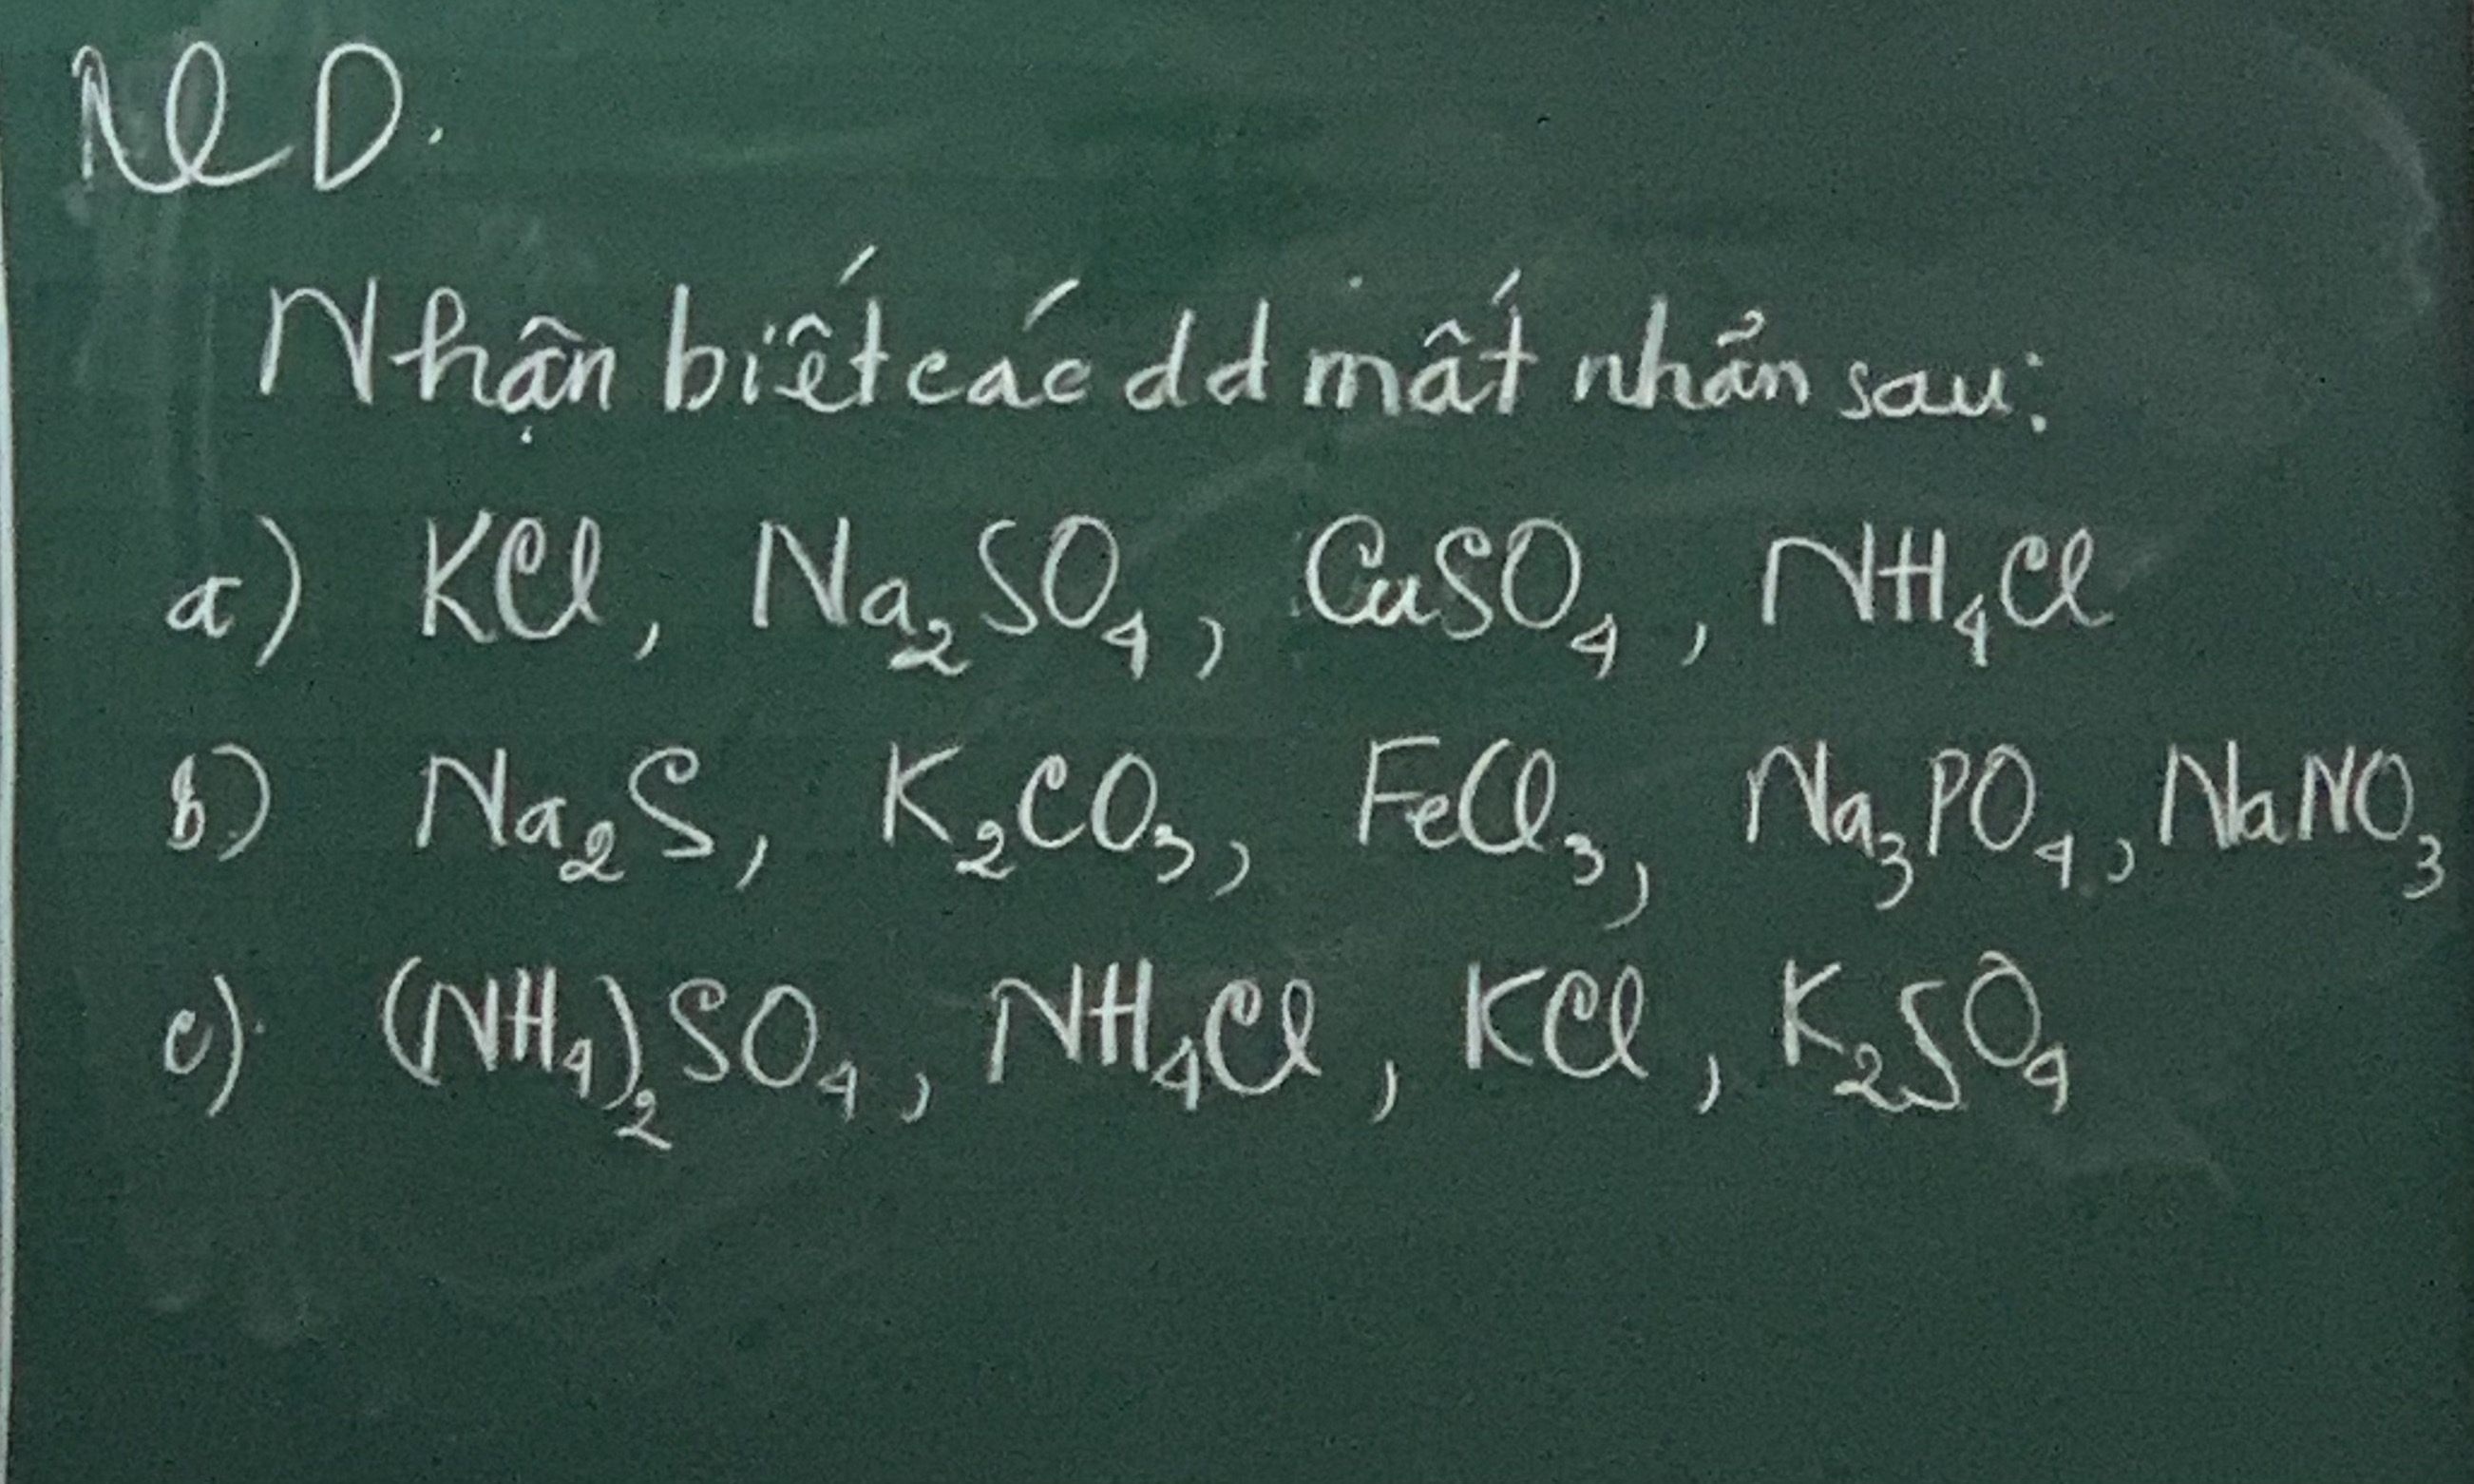 NLD.
Nhận biết các dd mất nhãn sau:
a) KCl, Na₂SO₄, CuSO₄, NH₄Cl
b) Na₂S, K₂CO₃, FeCl₃, Na₃PO₄, NaNO₃
c) (NH₄)₂SO₄, NH₄Cl, KCl, K₂SO₄